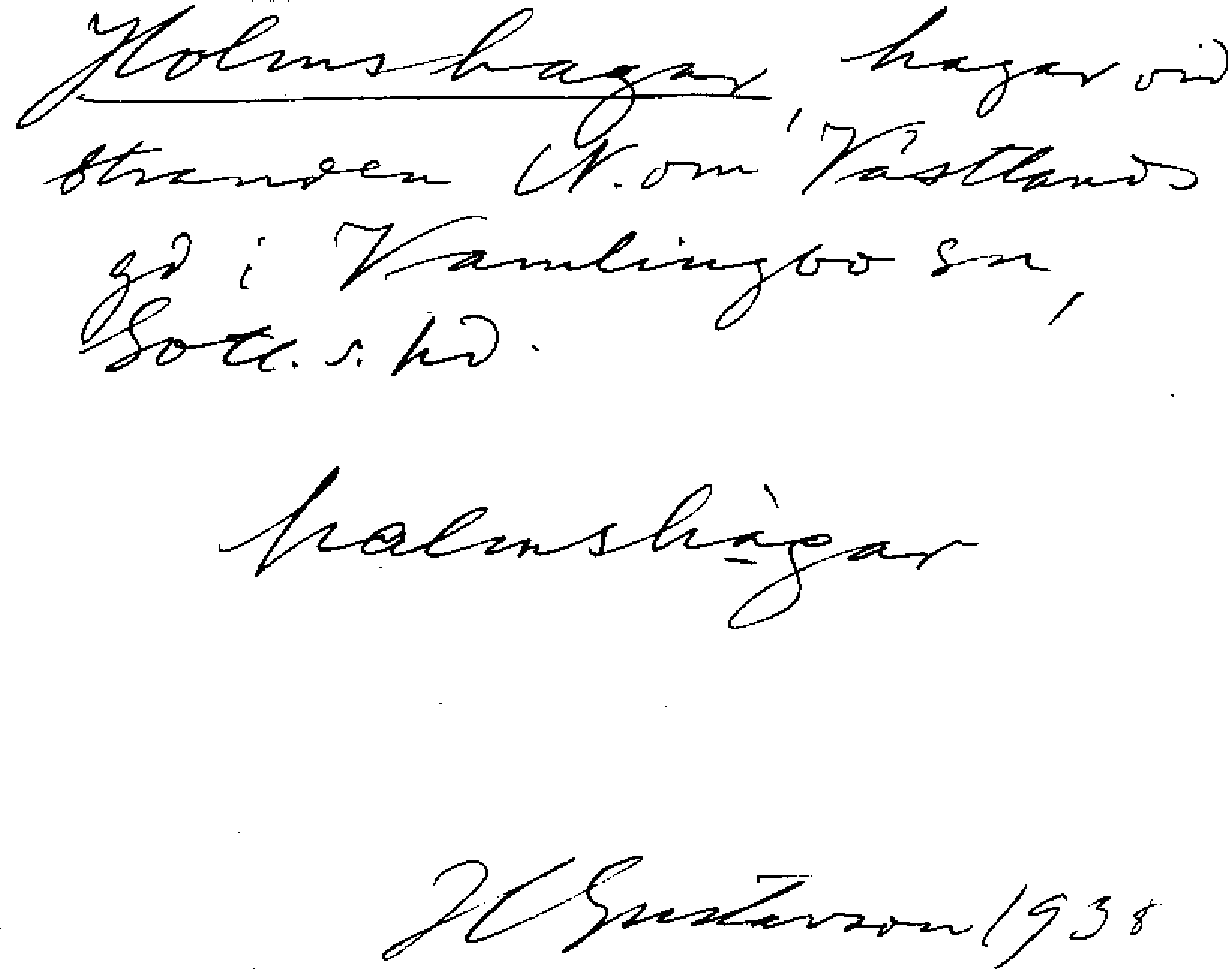 Holmshagar, hagar vid
stranden N. om Västlands
gd i Vamlingbo sn,
Gotl. s. hd.
halmshàgar
H Gustavson 1938